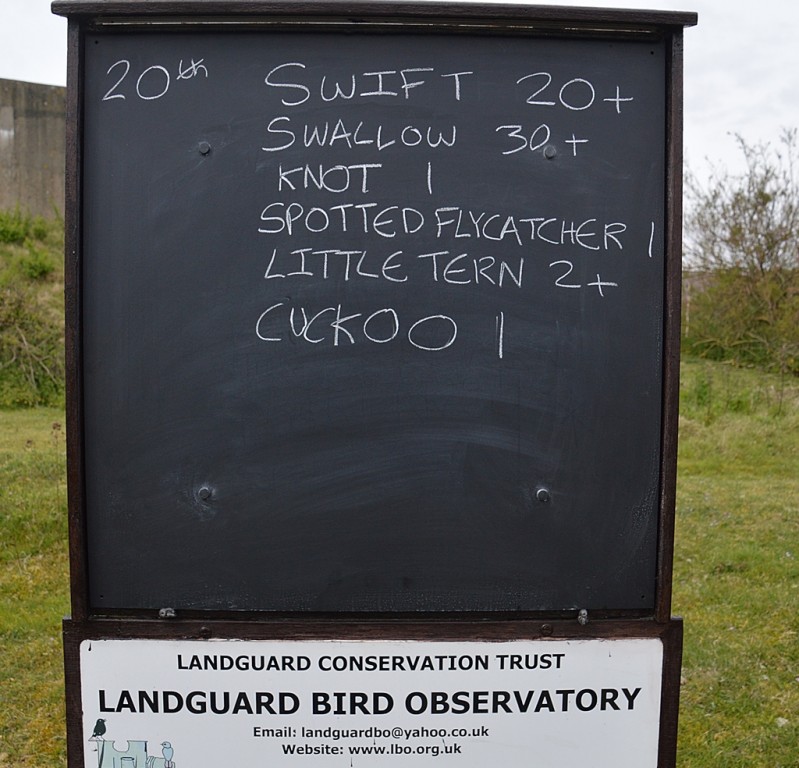 20th SWIFT 20+
SWALLOW 30+
KNOT 1
SPOTTED FLYCATCHER 1
LITTLE TERN 2+
CUCKOO 1
LANDGUARD CONSERVATION TRUST
LANDGUARD BIRD OBSERVATORY
Email: landguardbo@yahoo.co.uk
Website: www.lbo.org.uk